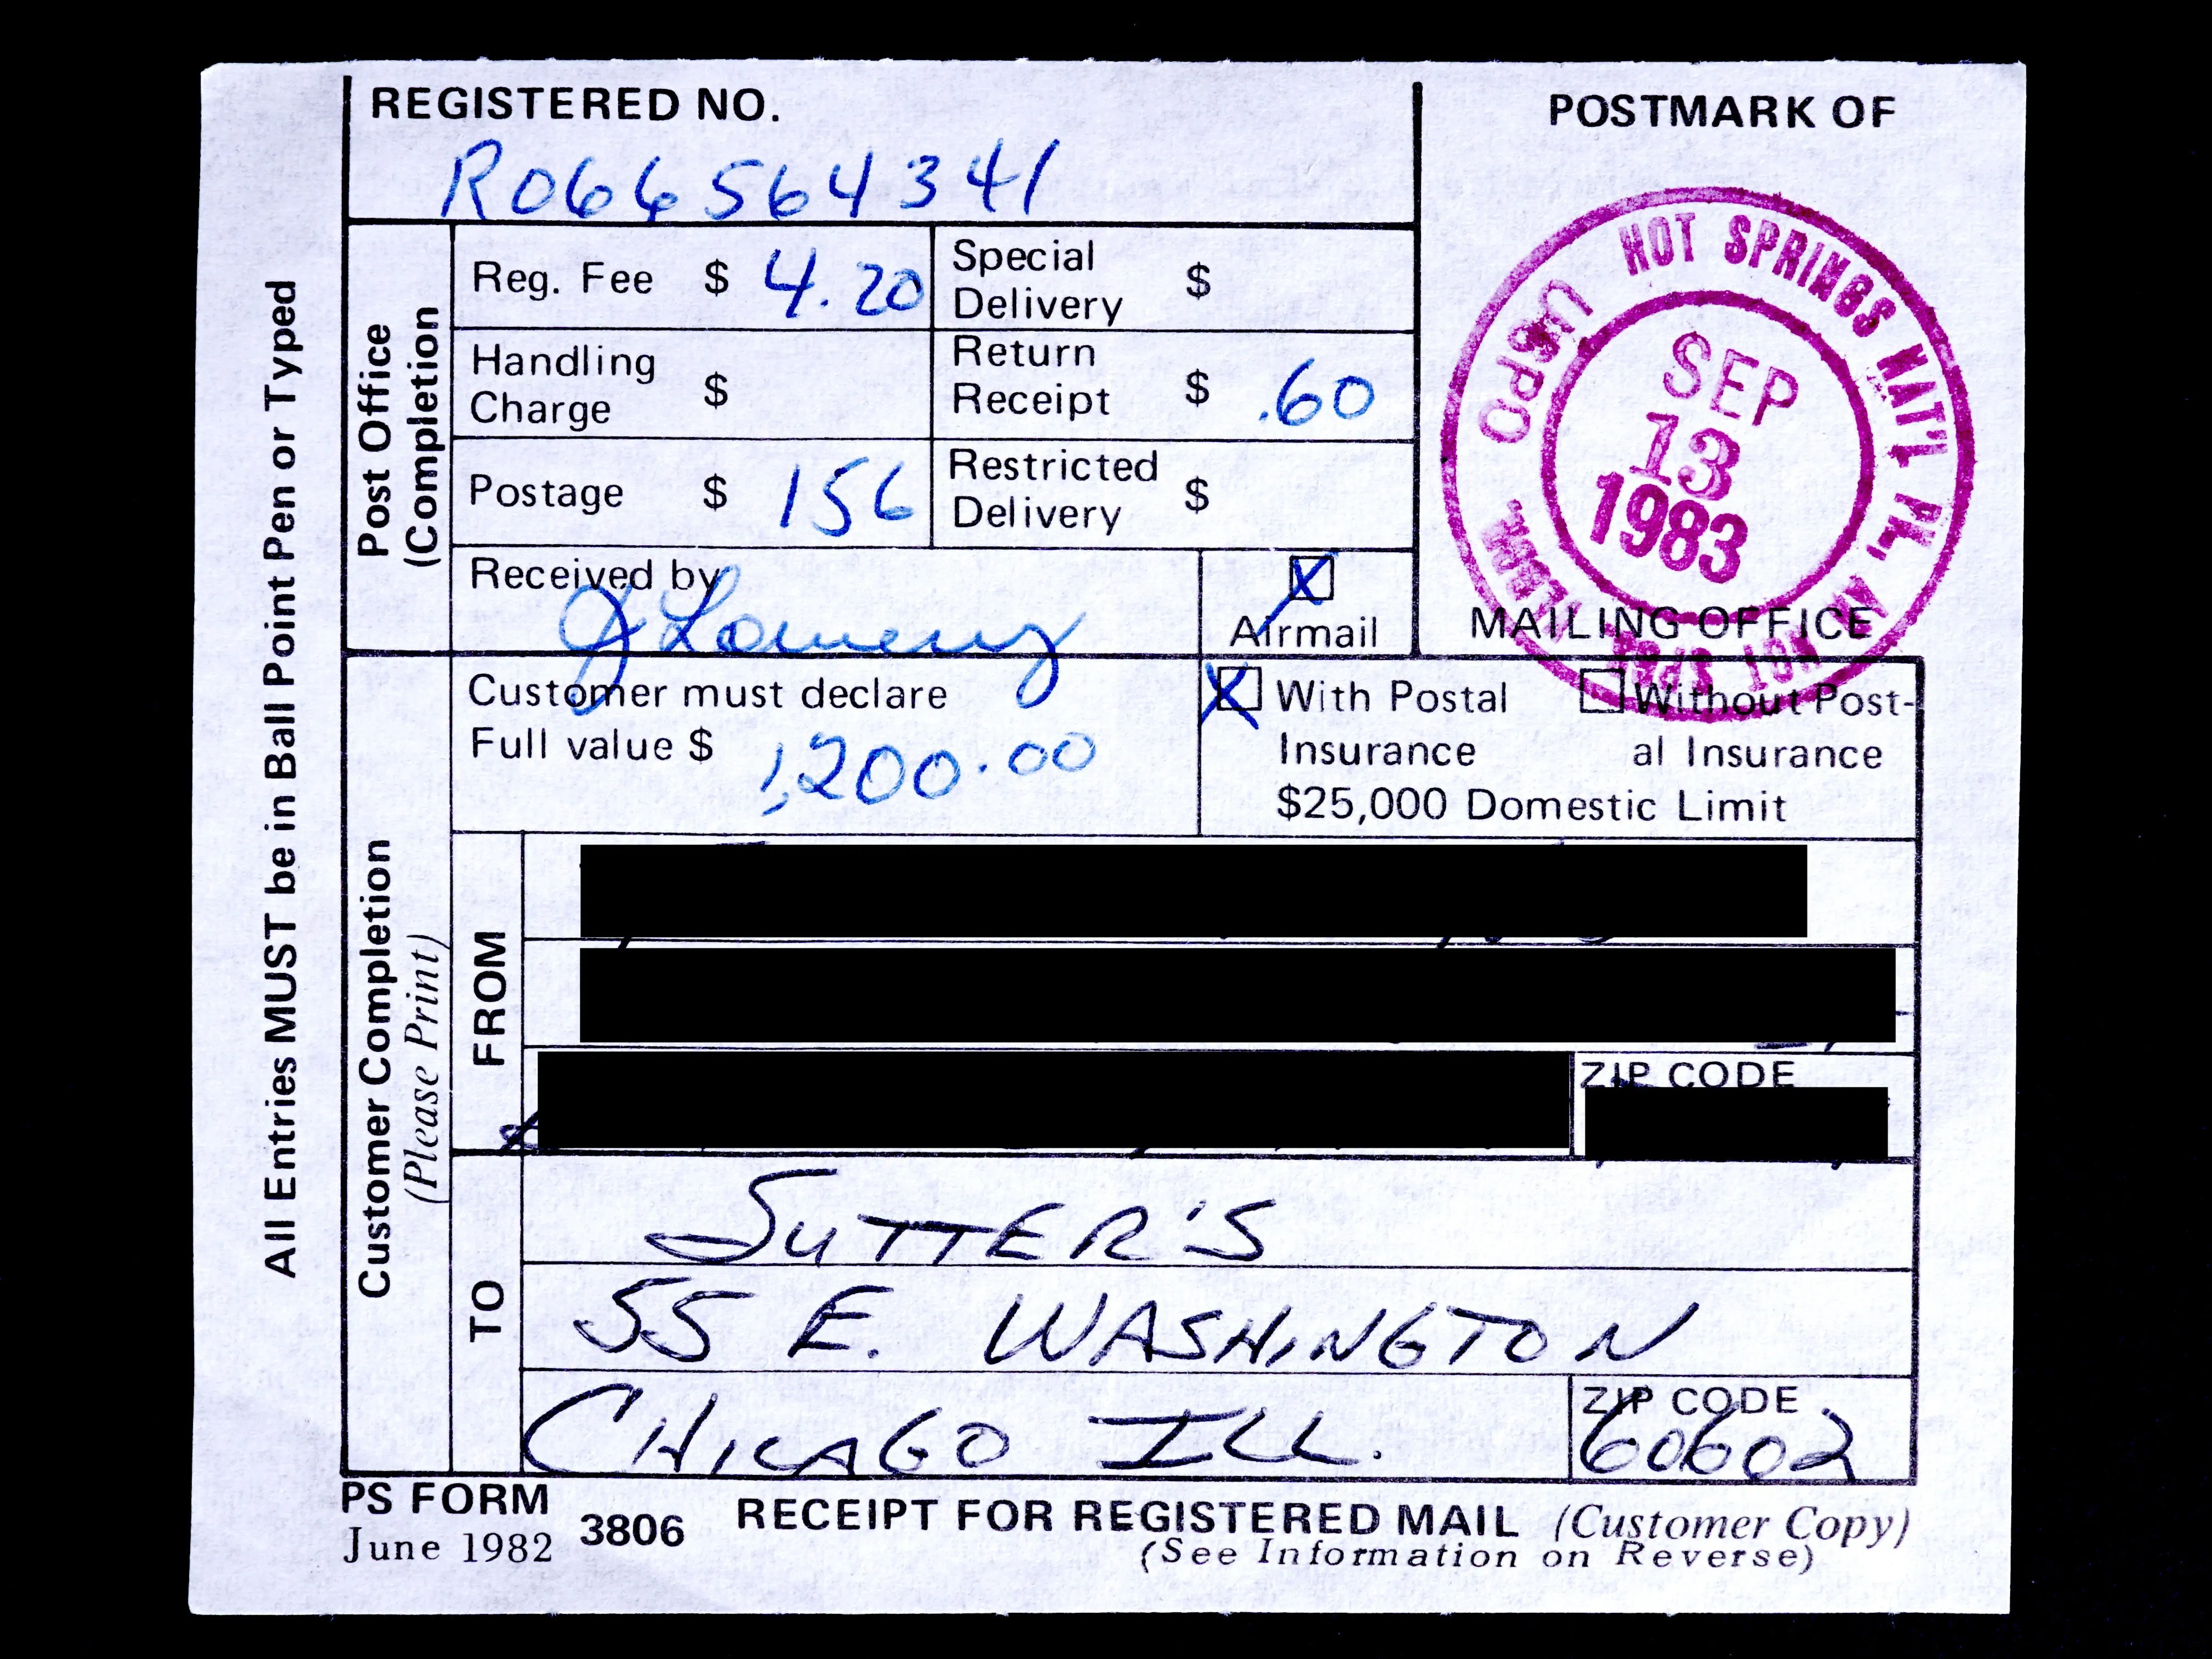 REGISTERED NO.
R066564341
POSTMARK OF
HOT SPRINGS NAT'L PK., AR
USPO
SEP
13
1983
HOT SPGS
MAILING OFFICE
All Entries MUST be in Ball Point Pen or Typed
Post Office
(Completion
Reg. Fee $ 4.20
Special
Delivery $
Handling
Charge $
Return
Receipt $ .60
Postage $ 156
Restricted
Delivery $
Received by
X
Airmail
Customer Completion
(Please Print)
Customer must declare
Full value $ 1,200.00
X With Postal
Insurance
Without Post-
al Insurance
$25,000 Domestic Limit
FROM
ZIP CODE
TO
SUTTER'S
55 E. WASHINGTON
CHICAGO ILL.
ZIP CODE
60602
PS FORM
June 1982
3806
RECEIPT FOR REGISTERED MAIL (Customer Copy)
(See Information on Reverse)